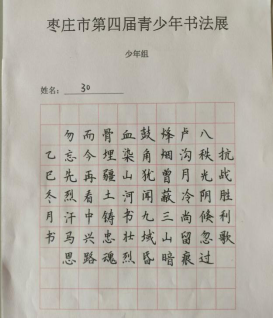 枣庄市第四届青少年书法展
少年组
姓名: 30
抗战胜利歌
八秩光阴倏忽过
卢沟月冷尚留痕
烽烟曾蔽三山暗
鼓角犹闻九域昏
血染山河书壮烈
骨埋疆土铸忠魂
而今再看中兴路
勿忘先烈汗马恩
乙巳冬月书